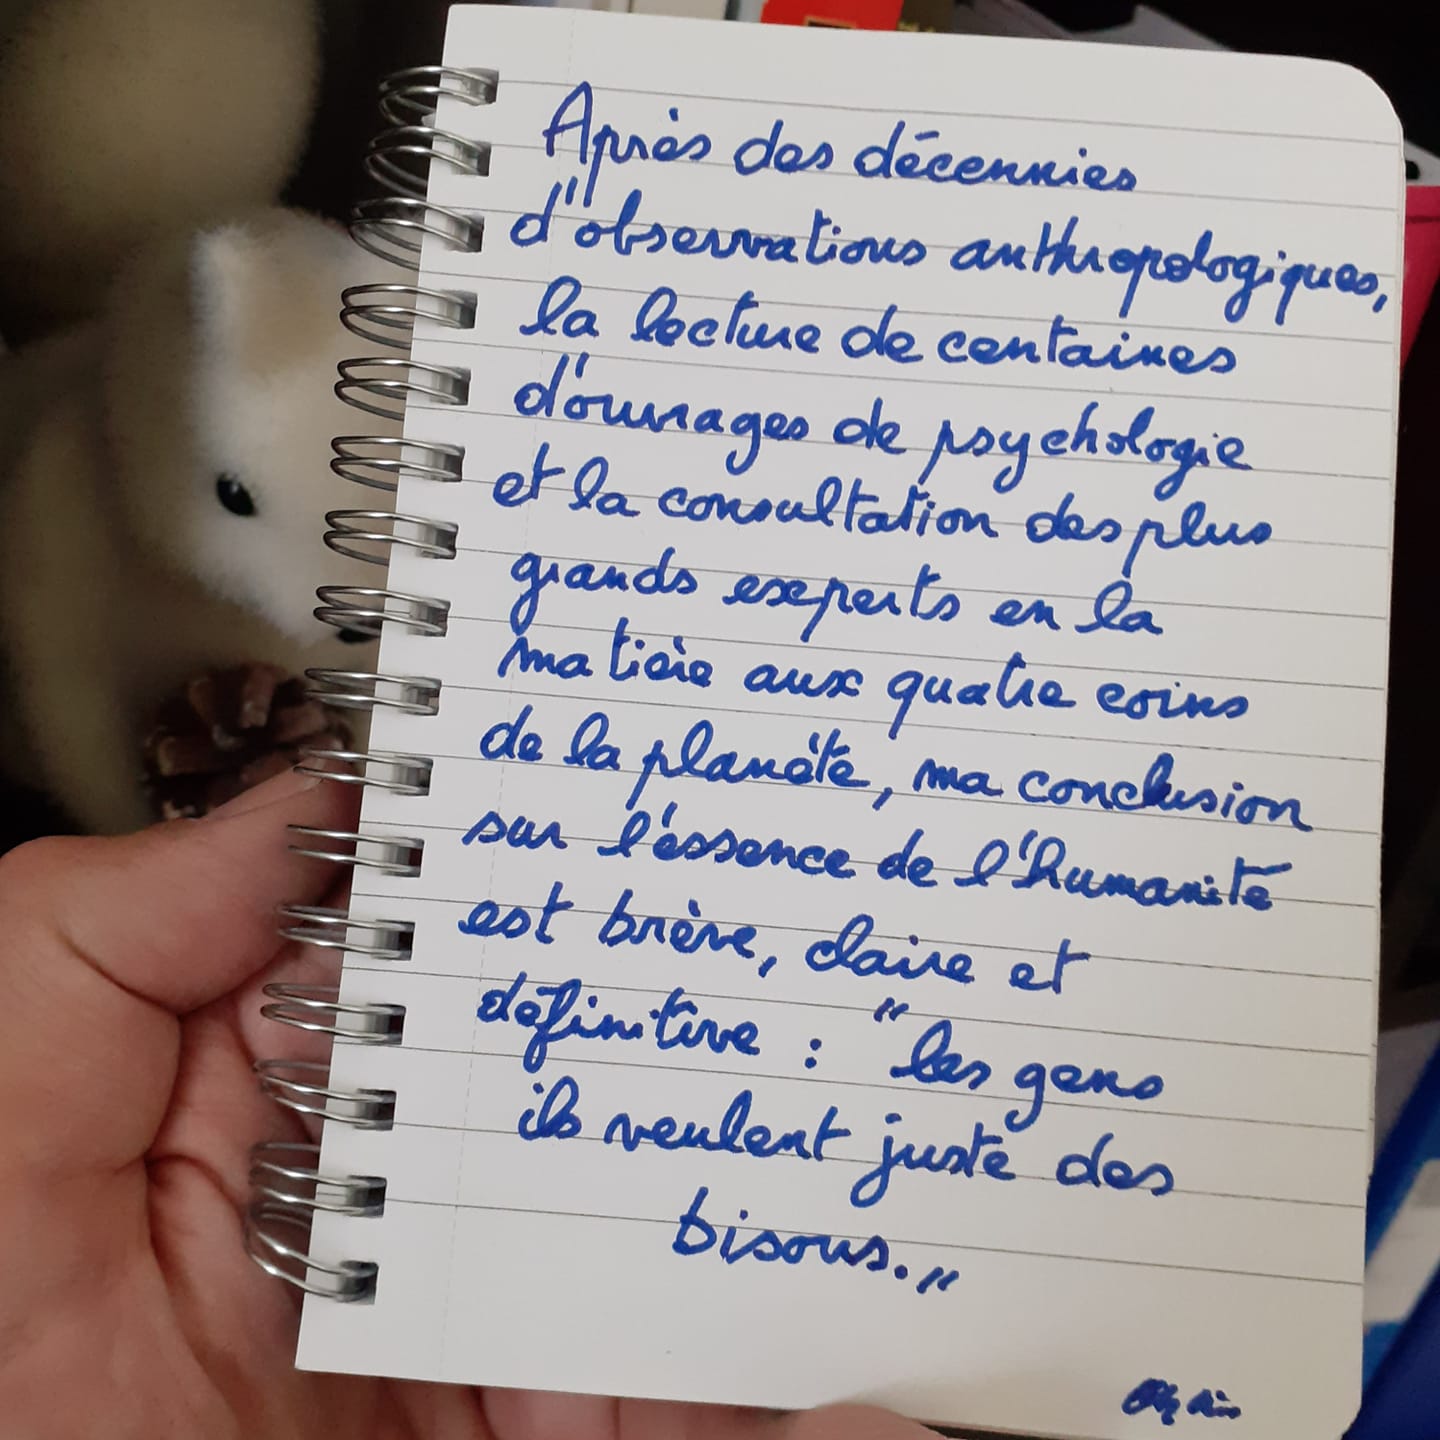 Après des décennies
d'observations anthropologiques,
la lecture de centaines
d'ouvrages de psychologie
et la consultation des plus
grands experts en la
matière aux quatre coins
de la planète, ma conclusion
sur l'éssence de l'humanité
est brève, claire et
définitive : "les gens
ils veulent juste des
bisous."